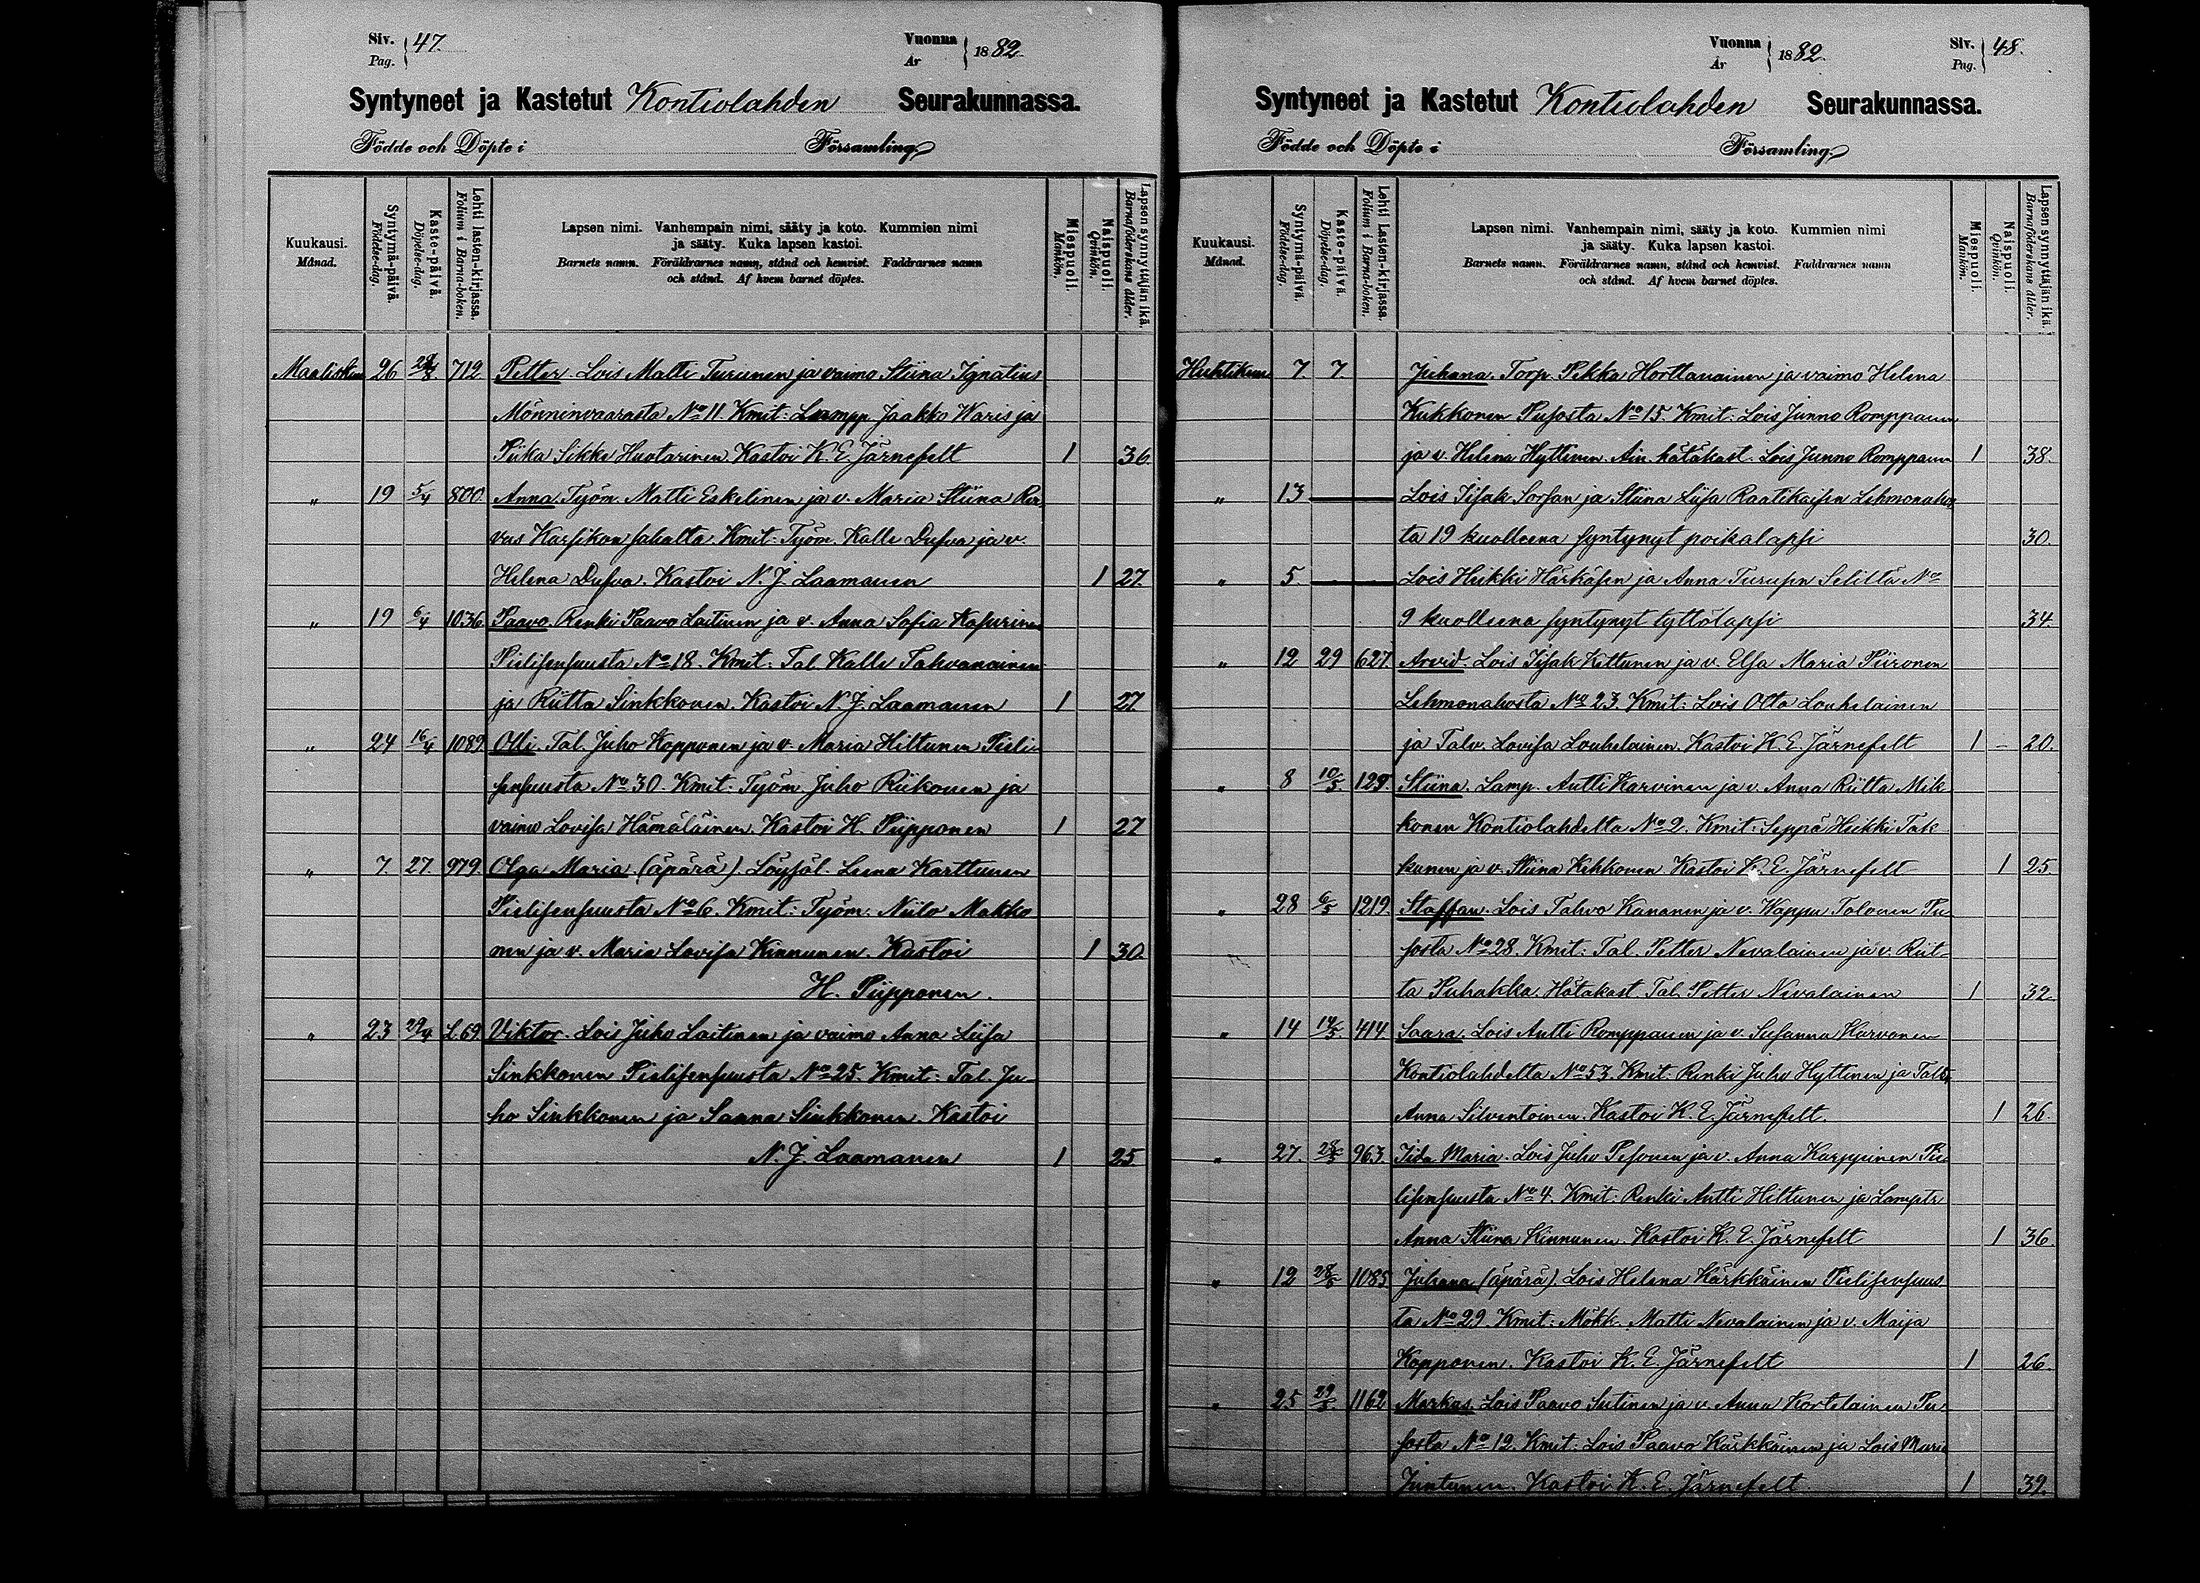 Siv. 47. Vuonna 1882
Pag. År
Syntyneet ja Kastetut Kontiolahden Seurakunnassa.
Födde och Döpte i Församling.
Kuukausi. Månad.
Syntymä-päivä. Födelse-dag.
Kaste-päivä. Döpelse-dag.
Lehti lasten-kirjassa. Folium i Barna-boken.
Lapsen nimi. Vanhempain nimi, sääty ja koto. Kummien nimi
ja sääty. Kuka lapsen kastoi.
Barnets namn. Föräldrarnes namn, stånd och hemvist. Faddrarnes namn
och stånd. Af hvem barnet döptes.
Miespuoli. Mankön.
Naispuoli. Qvinkön.
Lapsen synnyttäjän ikä. Barnaföderskans ålder.
Maalisku 26 712 Petter. Lois Matti Turunen ja vaimo Stiina Ignatius
Mönninvaarasta No 11. Kmit: Lampp. Jaakko Waris ja
Piika Sikke Huotarinen. Kastoi K. E. Järnefelt 1 36.
" 19 5/4 800. Anna. Työm. Matti Eskelinen ja v. Maria Stiina Rer
vus Karsikon sahalta. Kmit: Työm. Kalle Dufva ja v.
Helena Dufva. Kastoi N. J. Laamanen 1 27.
" 19 6/4 1036. Paavo. Renki Paavo Laitinen ja v. Anna Sofia Kapurinen
Pielisensuusta No 18. Kmit: Tal. Kalle Tahvanainen
ja Riitta Sinkkonen. Kastoi N. J. Laamanen 1 27.
" 24 16/4 1089. Olli. Tal. Juho Kopponen ja v. Maria Hiltunen Pieli-
sensuusta No 30. Kmit: Työm. Juho Riikonen ja
vaimo Lovisa Hämäläinen. Kastoi H. Piipponen 1 27
" 7. 27. 979. Olga Maria (äpärä). Löysäl. Leena Karttunen
Pielisensuusta No 6. Kmit: Työm: Niilo Makko
nen ja v. Maria Lovisa Kinnunen. Kastoi 1 30.
H. Piipponen.
" 23 29/4 L. 69. Viktor. Lois Juho Laitinen ja vaimo Anna Liisa
Sinkkonen Pielisensuusta No 25. Kmit: Tal. Ju-
ho Sinkkonen ja Sanna Sinkkonen. Kastoi
N. J. Laamanen 1 25.
Vuonna 1882. Siv. 48.
År Pag.
Syntyneet ja Kastetut Kontiolahden Seurakunnassa.
Födde och Döpte i Församling.
Kuukausi. Månad.
Syntymä-päivä. Födelse-dag.
Kaste-päivä. Döpelse-dag.
Lehti Lasten-kirjassa. Folium i Barna-boken.
Lapsen nimi. Vanhempain nimi, sääty ja koto. Kummien nimi
ja sääty. Kuka lapsen kastoi.
Barnets namn. Föräldrarnes namn, stånd och hemvist. Faddrarnes namn
och stånd. Af hvem barnet döptes.
Miespuoli. Mankön.
Naispuoli. Qvinkön.
Lapsen synnyttäjän ikä. Barnaföderskans ålder.
Huhtikuu 7. 7. Juhana. Torp. Pekka Horttanainen ja vaimo Helena
Kukkonen Pusosta No 15. Kmit: Lois Junno Romppanen
ja v. Helena Hyttinen. Ain hätäkast. Lois Junno Romppanen 1 38.
" 13 Lois Iisak Sorsan ja Stiina Liisa Raatikaisen Lehmonahos
ta 19 kuolleena syntynyt poikalapsi 30.
" 5 Lois Heikki Härkäsen ja Anna Turusen Seliltä No
9 kuolleena syntynyt tyttölapsi 34.
" 12 29 627. Arvid. Lois Iisak Kettunen ja v. Elsa Maria Piironen
Lehmonahosta No 23. Kmit: Lois Otto Louhelainen
ja Talv. Lovisa Louhelainen. Kastoi K. E. Järnefelt 1 – 20.
" 8 10/5 129. Stiina. Lamp. Antti Karvinen ja v. Anna Riitta Mik
konen Kontiolahdelta No 2. Kmit: Seppä Heikki Tak
kunen ja v. Stiina Kehkonen. Kastoi K. E. Järnefelt 1 25
" 28 6/5 1219 Staffan. Lois Tahvo Kananen ja v. Wappu Tolonen Pu
sosta No 28. Kmit: Tal. Petter Nevalainen ja v. Riit-
ta Puhakka. Hätäkast. Tal. Petter Nevalainen 1 32.
" 14 14/5 414. Saara. Lois Antti Romppanen ja v. Susanna Karvonen
Kontiolahdelta No 53. Kmit: Renki Juho Hyttinen ja Taltr
Anna Silventoinen. Kastoi K. E. Järnefelt. 1 26.
" 27. 28/5 963. Iida Maria. Lois Juho Pesonen ja v. Anna Karppinen Pie
lisensuusta No 4. Kmit: Renki Antti Hiltunen ja Lamptr
Anna Stiina Kinnunen. Kastoi K. E. Järnefelt 1 36.
" 12 28/5 1085 Juhana (äpärä). Lois Helena Kärkkäinen Pielisensuus
ta No 29. Kmit: Mökk. Matti Nevalainen ja v. Maija
Kopponen. Kastoi K. E. Järnefelt 1 26.
" 25 29/5. 1162 Markus. Lois Paavo Sutinen ja v. Anna Kortelainen Pu
sosta No 12. Kmit: Lois Paavo Kärkkäinen ja Lois Maria
Juntunen. Kastoi K. E. Järnefelt. 1 39.